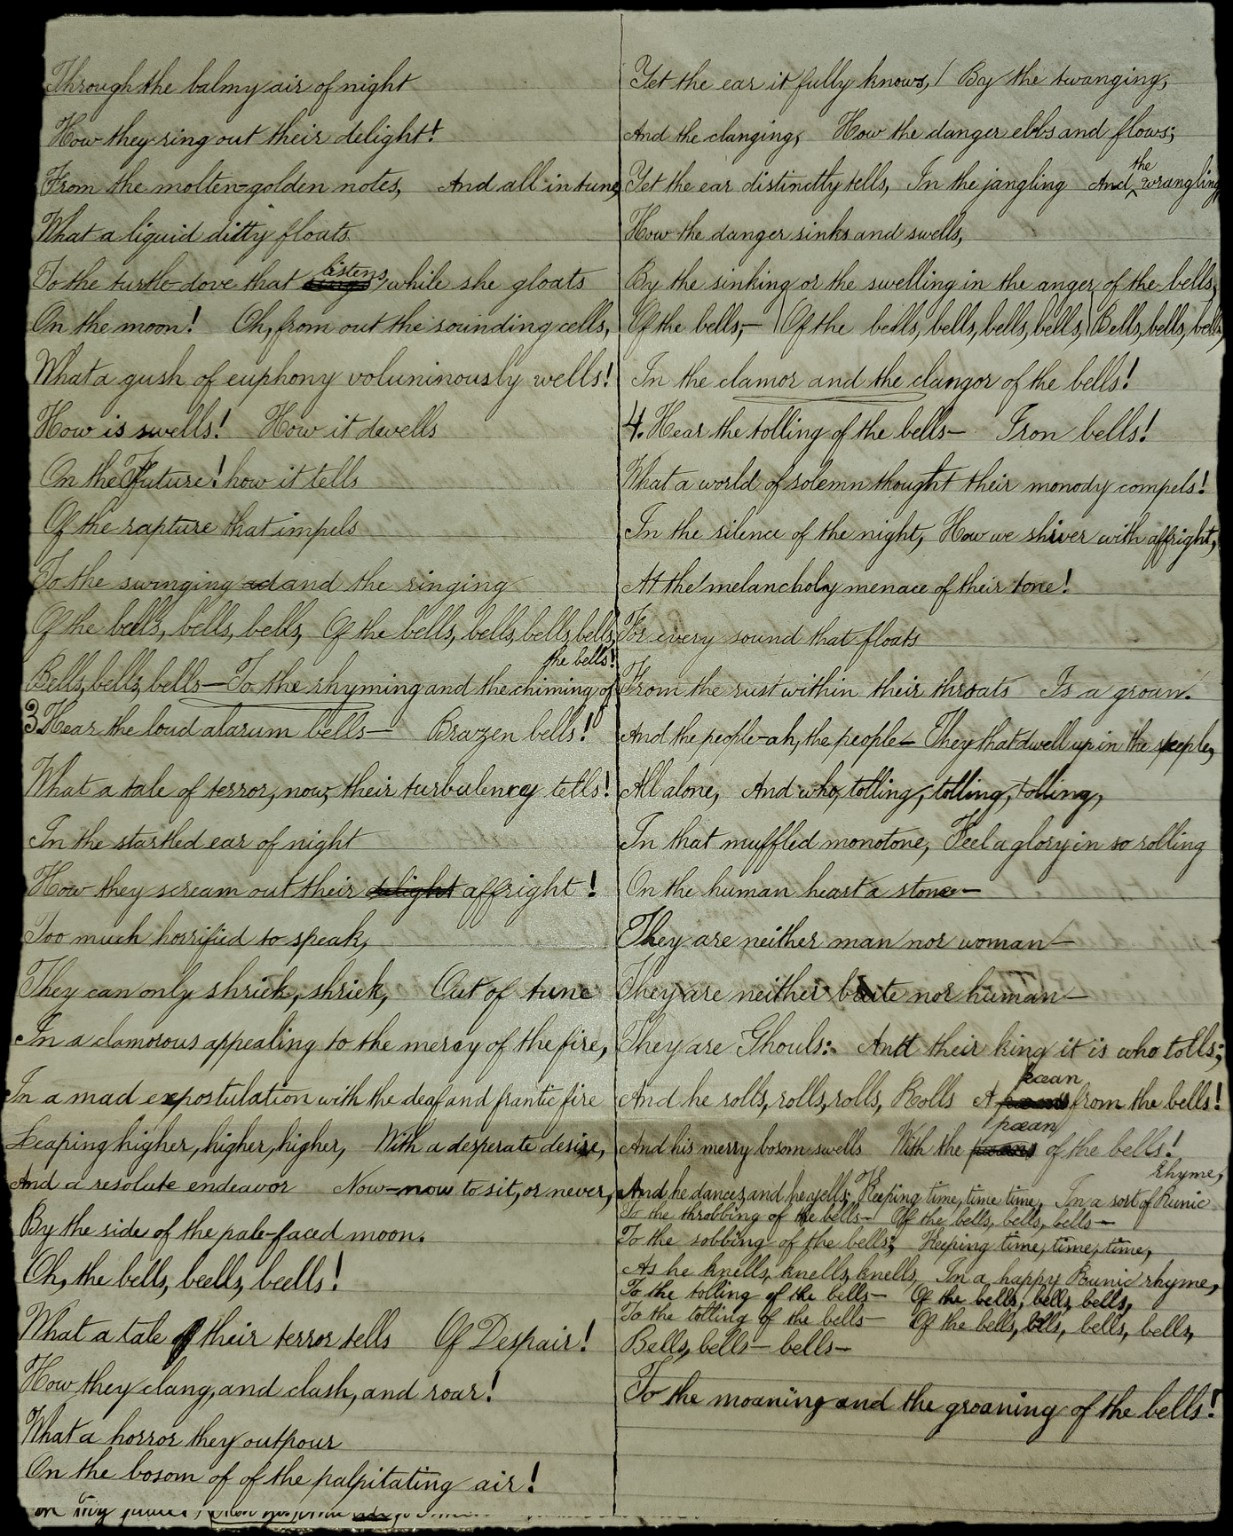 Through the balmy air of night
How they ring out their delight!
From the molten-golden notes, And all in tune,
What a liquid ditty floats
To the turtle-dove that listens, while she gloats
On the moon! Oh, from out the sounding cells,
What a gush of euphony voluninously wells!
How is swells! How it dwells
On the Future! how it tells
Of the rapture that impels
To the swinging ad and the ringing
Of the bells, bells, bells, Of the bells, bells, bells, bells,
Bells, bells, bells — To the rhyming and the chiming of the bells!
3. Hear the loud alarum bells — Brazen bells!
What a tale of terror, now, their turbulency tells!
In the startled ear of night
How they scream out their delight affright!
Too much horrified to speak,
They can only shriek, shriek, Out of tune
In a clamorous appealing to the mercy of the fire,
In a mad expostulation with the deaf and frantic fire
Leaping higher, higher, higher, With a desperate desire,
And a resolute endeavor Now — now to sit, or never,
By the side of the pale-faced moon.
Oh, the bells, beells, beells!
What a tale of their terror tells Of Despair!
How they clang, and clash, and roar!
What a horror they outpour
On the bosom of of the palpitating air!
Yet the ear it fully knows, / By the twanging,
And the clanging, How the danger ebbs and flows;
Yet the ear distinctly tells, In the jangling And the wrangling
How the danger sinks and swells,
By the sinking or the swelling in the anger of the bells,
Of the bells, — Of the bells, bells, bells, bells, Bells, bells, bells,
In the clamor and the clangor of the bells!
4. Hear the tolling of the bells — Iron bells!
What a world of solemn thought their monody compels!
In the silence of the night, How we shiver with affright,
At the melancholy menace of their tone!
For every sound that floats
From the rust within their throats Is a groan.
And the people — ah, the people — They that dwell up in the steeple,
All alone, And who, tolling, tolling, tolling,
In that muffled monotone, Feel a glory in so rolling
On the human heart a stone —
They are neither man nor woman —
They are neither brute nor human —
They are Ghouls: And their king it is who tolls;
And he rolls, rolls, rolls, Rolls A pæan from the bells!
And his merry bosom swells With the pæan of the bells!
And he dances, and he yells; Keeping time, time, time, In a sort of Runic rhyme,
To the throbbing of the bells — Of the bells, bells, bells —
To the sobbing of the bells; Keeping time, time, time,
As he knells, knells, knells, In a happy Runic rhyme,
To the tolling of the bells — Of the bells, bells, bells,
To the tolling of the bells — Of the bells, bells, bells, bells,
Bells, bells — bells —
To the moaning and the groaning of the bells!